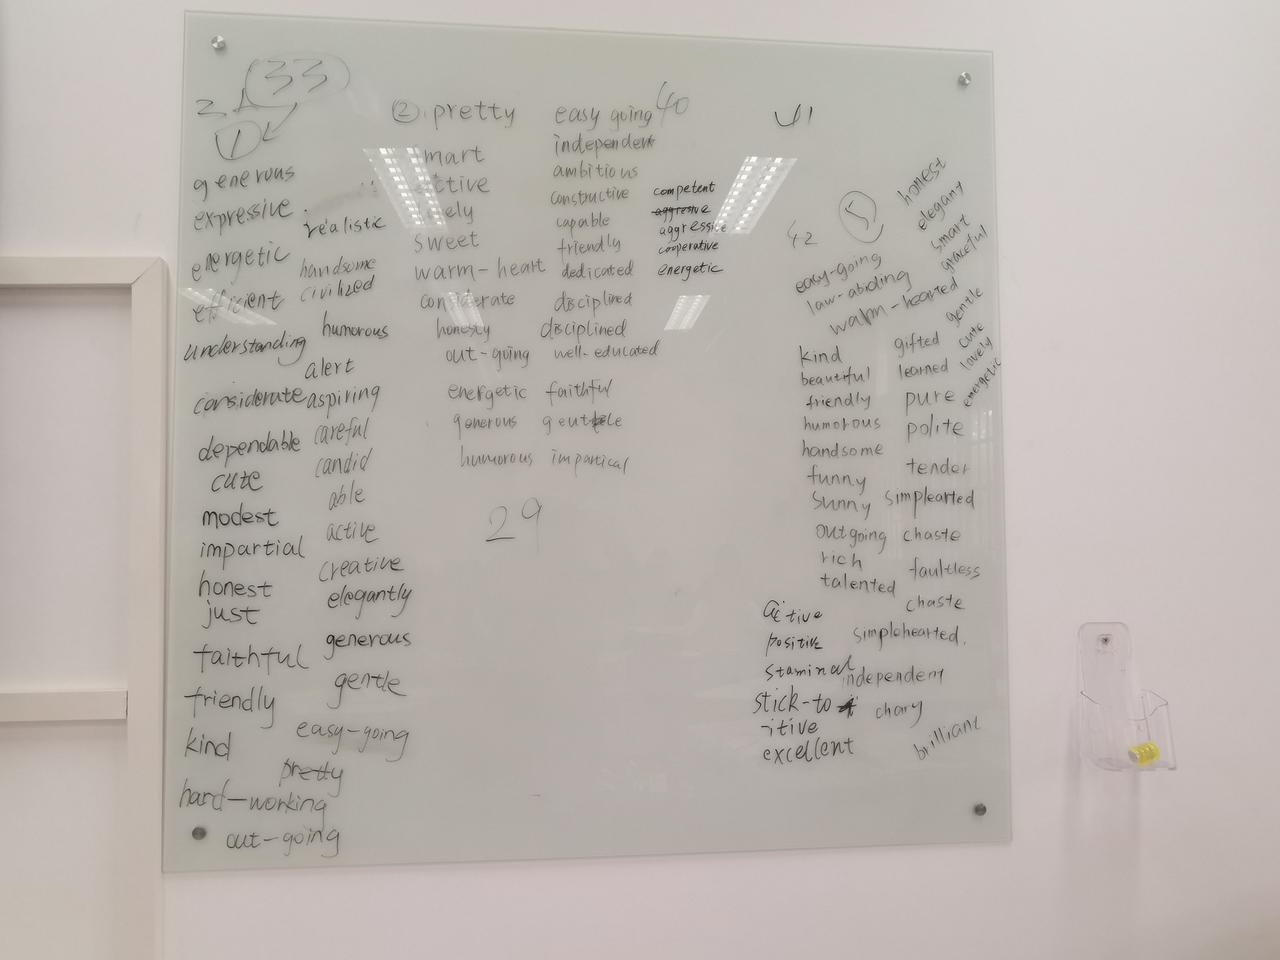 33
2
1
generous
expressive
energetic
efficient
understanding
considerate
dependable
cute
modest
impartial
honest
just
faithful
friendly
kind
hard-working
out-going
realistic
handsome
civilized
humorous
alert
aspiring
careful
candid
able
active
creative
elegantly
generous
gentle
easy-going
pretty
2 pretty
smart
active
lovely
sweet
warm-heart
considerate
honesty
out-going
energetic
generous
humorous
29
easy going 40
independent
ambitious
constructive
capable
friendly
dedicated
disciplined
disciplined
well-educated
faithful
impartical
competent
aggresive
aggressive
cooperative
energetic
41
42
5
easy-going
law-abiding
warm-hearted
kind
beautiful
friendly
humorous
handsome
funny
sunny
outgoing
rich
talented
active
positive
staminal
stick-to
itive
excellent
gifted
learned
pure
polite
tender
simplearted
chaste
faultless
chaste
simplehearted.
independent
chary
brilliant
honest
elegany
smart
graceful
gentle
cute
lovely
energetic